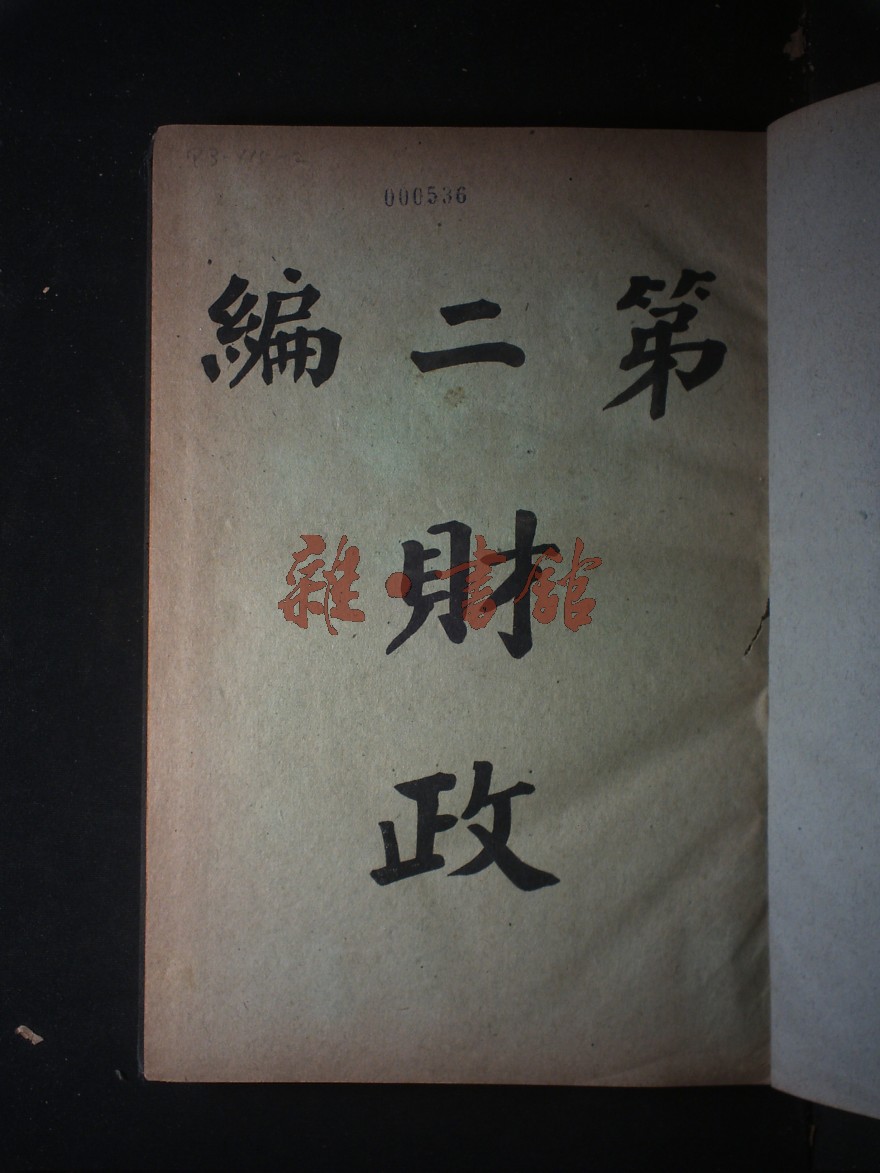 000536
第二編
財政
雜·書館